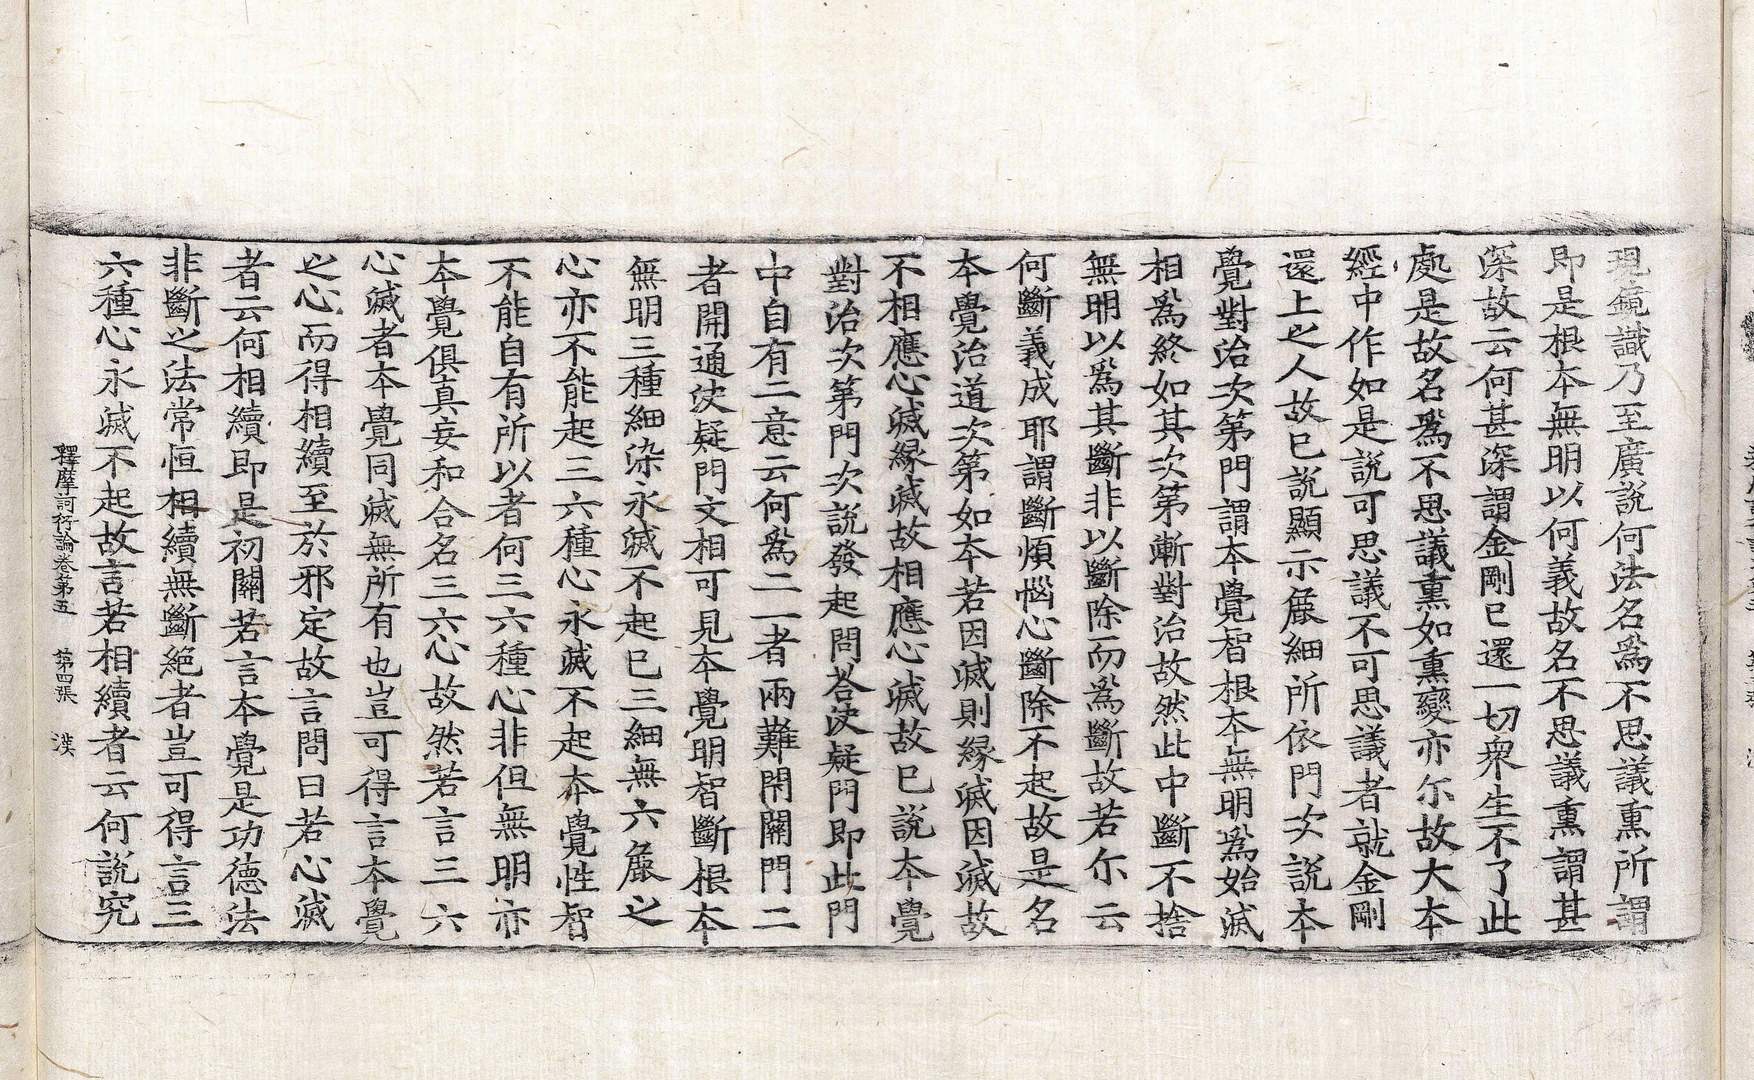 現鏡識乃至廣說何法名爲不思議熏所謂
即是根本無明以何義故名不思議熏謂甚
深故云何甚深謂金剛已還一切衆生不了此
處是故名爲不思議熏如熏變亦尒故大本
經中作如是說可思議不可思議者就金剛
還上之人故已說顯示麁細所依門次說本
覺對治次第門謂本覺智根本無明爲始滅
相爲終如其次第漸對治故然此中斷不捨
無明以爲其斷非以斷除而爲斷故若尒云
何斷義成耶謂斷煩惱心斷除不起故是名
本覺治道次第如本若因滅則緣滅因滅故
不相應心滅緣滅故相應心滅故已說本覺
對治次第門次說發起問荅决疑門即此門
中自有二意云何爲二一者兩難開關門二
者開通决疑門文相可見本覺明智斷根本
無明三種細染永滅不起已三細無六麁之
心亦不能起三六種心永滅不起本覺性智
不能自有所以者何三六種心非但無明亦
本覺俱真妄和合名三六心故然若言三六
心滅者本覺同滅無所有也豈可得言本覺
之心而得相續至於邪定故言問曰若心滅
者云何相續即是初關若言本覺是功德法
非斷之法常恒相續無斷絕者豈可得言三
六種心永滅不起故言若相續者云何說究
釋摩訶衍論卷第五 第四張 漢